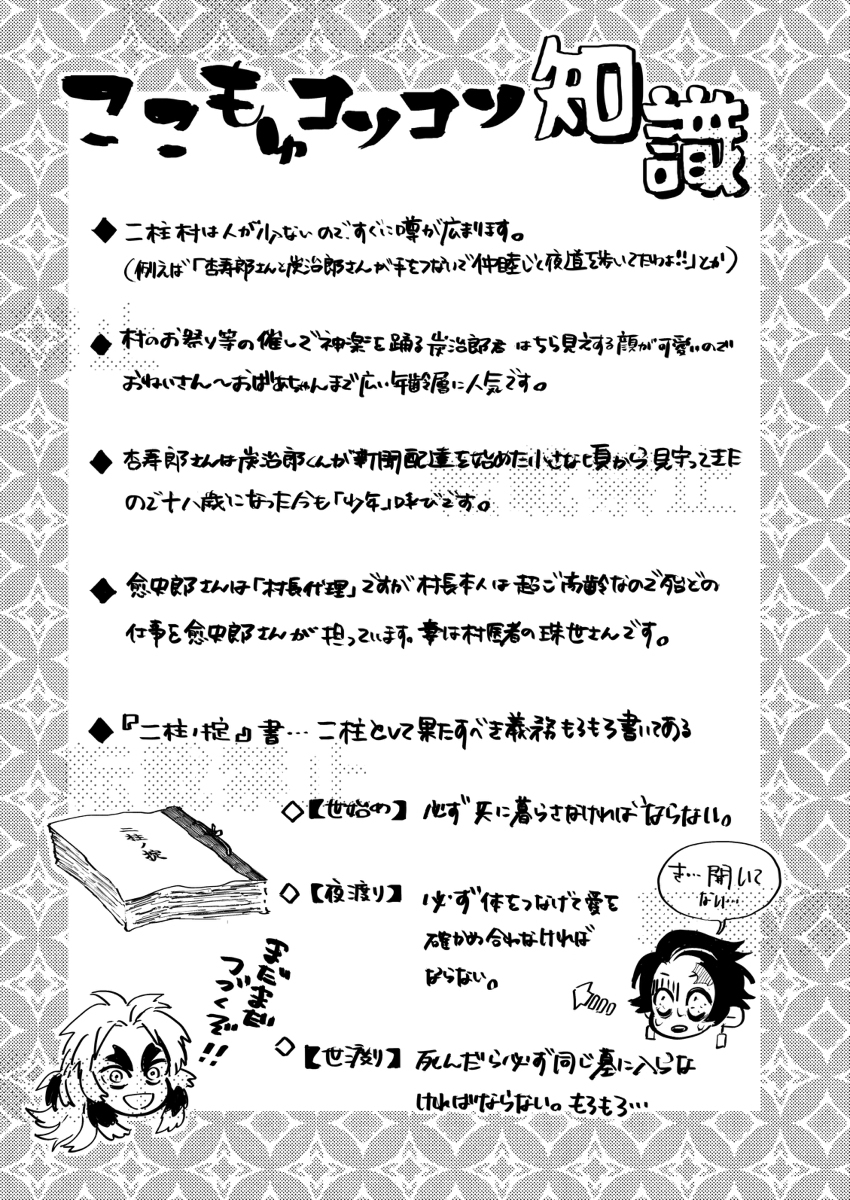 ここもゅコソコソ知識
◆ 二柱村は人が少ないのですぐに噂が広まります。
(例えば「杏寿郎さんと炭治郎さんが手をつないで仲睦じく夜道を歩いてたわよ!!」とか)
◆ 村のお祭り等の催しで神楽を踊る炭治郎君はちら見えする顔が可愛いので
おねいさん〜おばあちゃんまで広い年齢層に人気です。
◆ 杏寿郎さんは炭治郎くんが新聞配達を始めた小さな頃から見守ってきた
ので十八歳になった今も「少年」呼びです。
◆ 愈史郎さんは「村長代理」ですが村長本人は超ご高齢なので殆どの
仕事を愈史郎さんが担っています。妻は村医者の珠世さんです。
◆ 『二柱ノ掟』書…二柱として果たすべき義務もろもろ書いてある
二柱ノ掟
◇【世始め】 必ず共に暮らさなければならない。
◇【夜渡り】 必ず体をつなげて愛を
確かめ合わなければ
ならない。
き…聞いて
ない…
まだまだ
つづくぞ!!
◇【世渡り】 死んだら必ず同じ墓に入らな
ければならない。もろもろ…